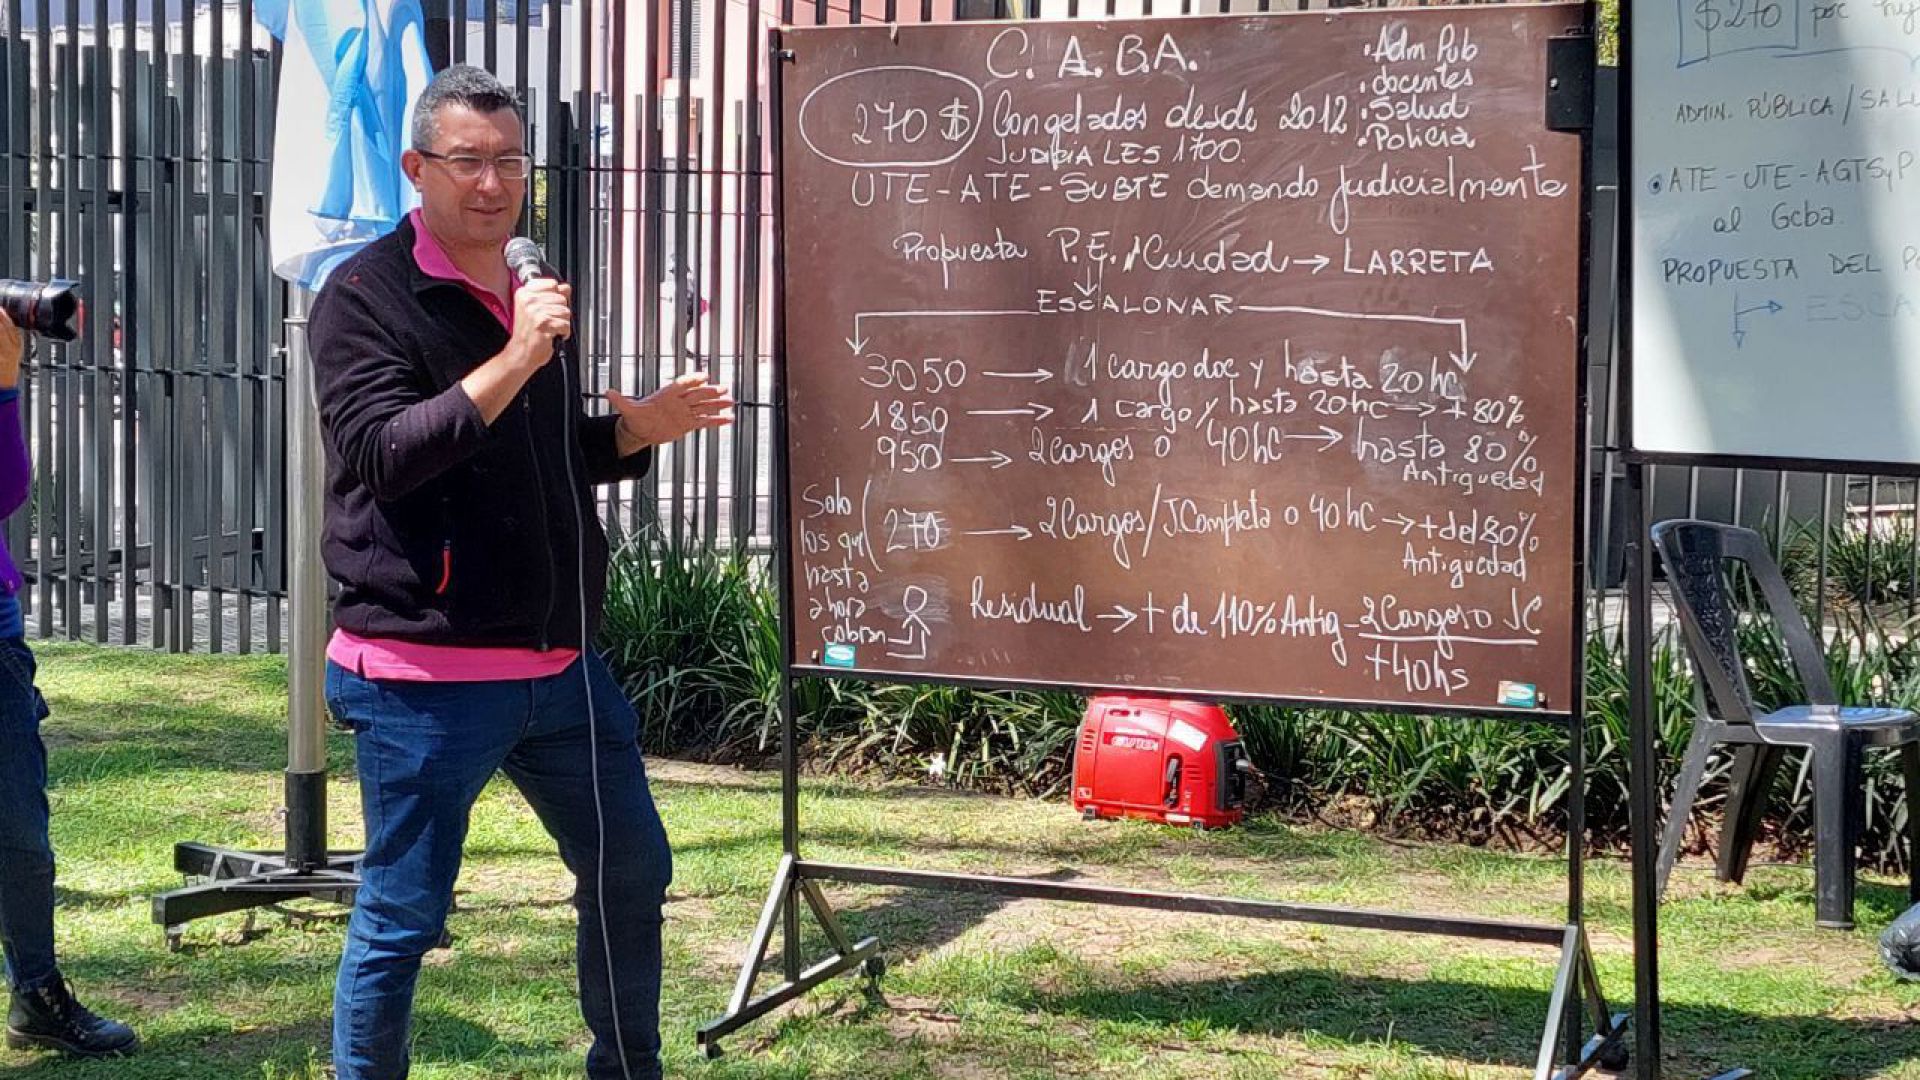 C. A. B. A.
270 $ Congelados desde 2012
JUDICIALES 1700
• Adm Pub
• docentes
• Salud
• Policía
UTE - ATE - SUBTE demando judicialmente
Propuesta P.E. Ciudad → LARRETA
ESCALONAR
3050 → 1 cargo doc y hasta 20 hc
1850 → 1 cargo y hasta 20 hc → + 80%
950 → 2 cargos o 40 hc → hasta 80%
Antigüedad
270 → 2 Cargos / J. Completa o 40 hc → + del 80%
Antigüedad
Solo
los que
hasta
ahora
cobran
Residual → + de 110% Antig - 2 Cargos o JC
+40hs
$270 por
ADMIN. PÚBLICA / SAL
• ATE - UTE - AGTSyP
al Gcba.
PROPUESTA DEL
ESCA